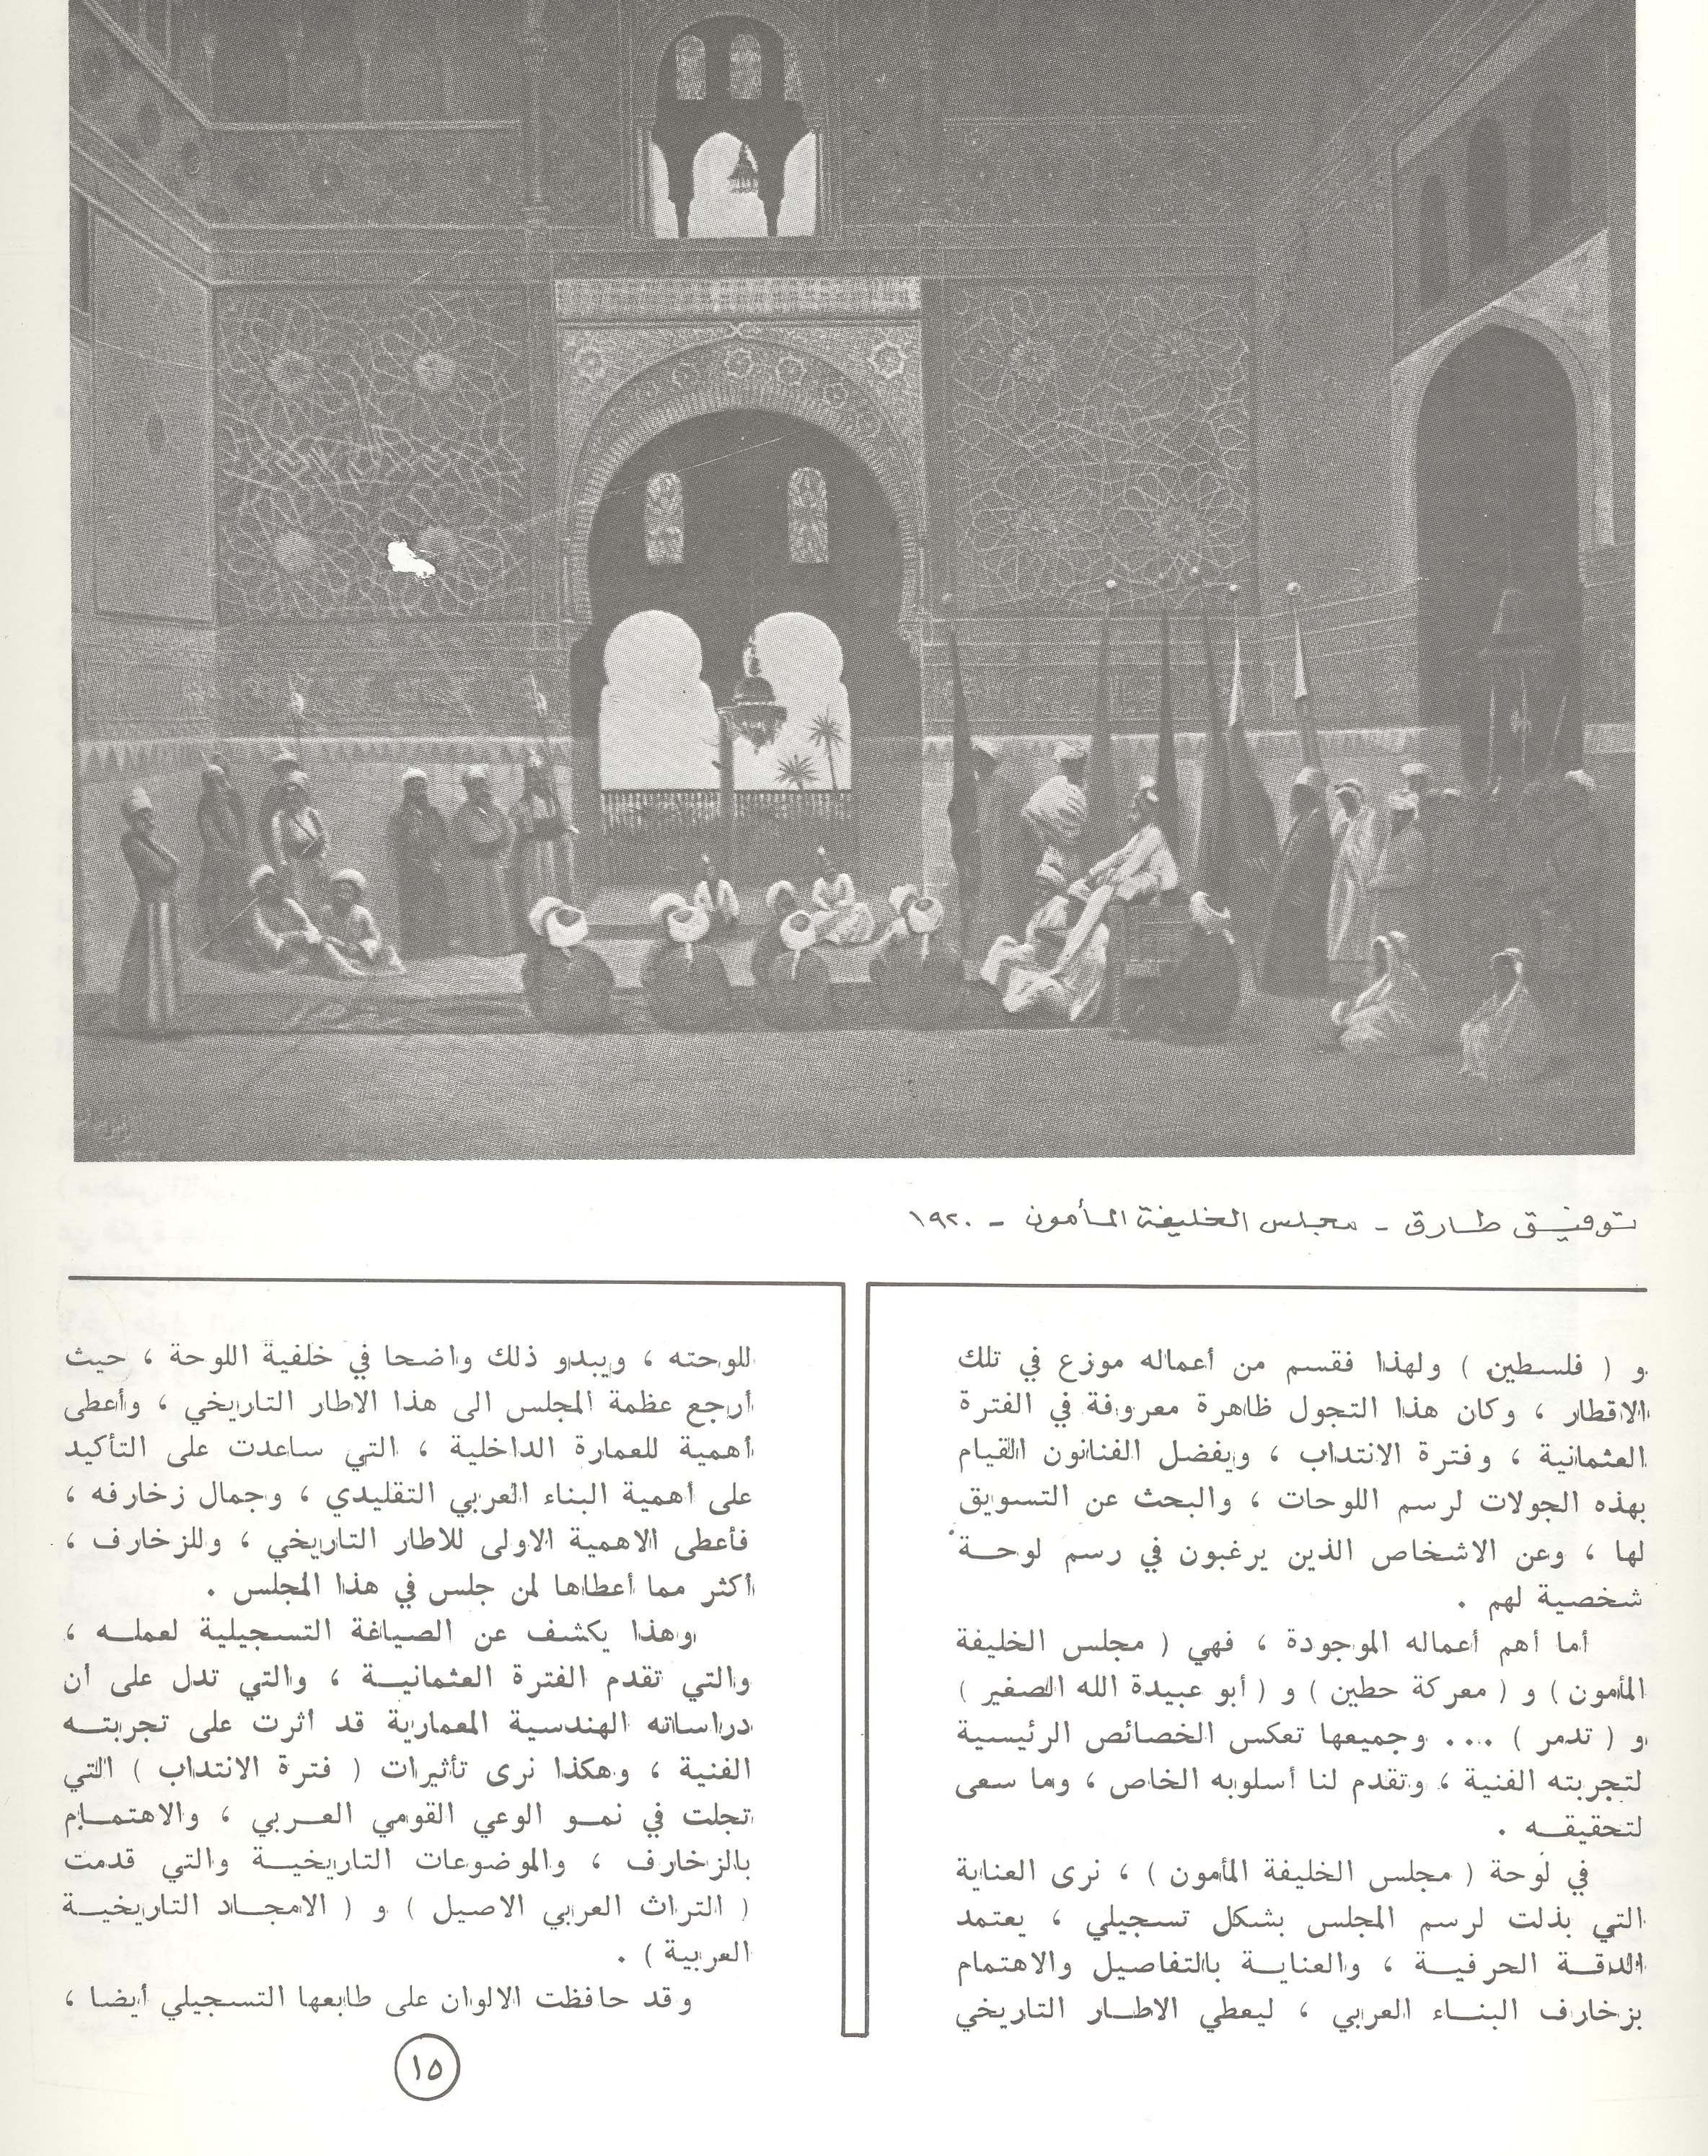 توفيق طارق - مجلس الخليفة المأمون - ١٩٢٠
و ( فلسطين ) ولهذا فقسم من أعماله موزع في تلك
الاقطار ، وكان هذا التجول ظاهرة معروفة في الفترة
العثمانية ، وفترة الانتداب ، ويفضل الفنانون القيام
بهذه الجولات لرسم اللوحات ، والبحث عن التسويق
لها ، وعن الاشخاص الذين يرغبون في رسم لوحــة
شخصية لهم .
أما أهم أعماله الموجودة ، فهي ( مجلس الخليفة
المأمون ) و ( معركة حطين ) و ( أبو عبيدة الله الصغير )
و ( تدمر ) ... وجميعها تعكس الخصائص الرئيسية
لتجربته الفنية ، وتقدم لنا أسلوبه الخاص ، وما سعى
لتحقيقــه .
في لوحة ( مجلس الخليفة المأمون ) ، نرى العناية
التي بذلت لرسم المجلس بشكل تسجيلي ، يعتمد
الدقــة الحرفيــة ، والعنايــة بالتفاصيل والاهتمام
بزخارف البنــاء العربي ، ليعطي الاطــار التاريخي
للوحته ، ويبدو ذلك واضحا في خلفية اللوحة ، حيث
أرجع عظمة المجلس الى هذا الاطار التاريخي ، وأعطى
أهمية للعمارة الداخلية ، التي ساعدت على التأكيد
على أهمية البناء العربي التقليدي ، وجمال زخارفه ،
فأعطى الاهمية الاولى للاطار التاريخي ، وللزخارف ،
أكثر مما أعطاها لمن جلس في هذا المجلس .
وهذا يكشف عن الصياغة التسجيلية لعملــه ،
والتي تقدم الفترة العثمانيــة ، والتي تدل على أن
دراساته الهندسية المعمارية قد أثرت على تجربتــه
الفنية ، وهكذا نرى تأثيرات ( فترة الانتداب ) التي
تجلت في نمــو الوعي القومي العــربي ، والاهتمــام
بالزخارف ، والموضوعات التاريخيــة والتي قدمت
( التراث العربي الاصيل ) و ( الامجــاد التاريخيــة
العربية ) .
وقد حافظت الالوان على طابعها التسجيلي أيضا ،
١٥